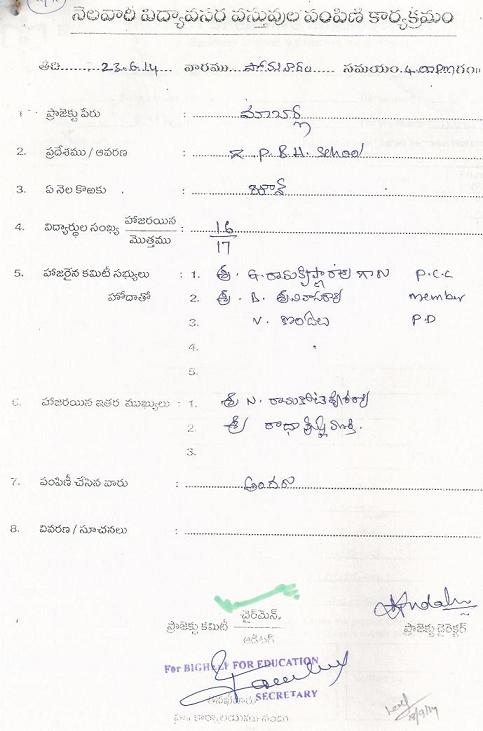 నెలవారీ విద్యావసర వస్తువుల పంపిణీ కార్యక్రమం
తేది......... 23.6.14 ...... వారము... సోమవారం ........ సమయం. 4.00PMగం॥
1. ప్రాజెక్టు పేరు :
2. ప్రదేశము / ఆవరణ : Z P. B.H. School
3. ఏ నెల కొఱకు : జూన్
4. విద్యార్థుల సంఖ్య హాజరయిన / మొత్తము : 16 / 17
5. హాజరైన కమిటీ సభ్యులు : 1. శ్రీ. G. రామకృష్ణారావు గారు P.C.C
హోదాతో 2. శ్రీ. B. శ్రీనివాసరావు member
3. V. కొండలు P.D
4.
5.
6. హాజరయిన ఇతర ముఖ్యులు : 1. శ్రీ N. రామకోటేశ్వరరావు
2. శ్రీ రాధాకృష్ణమూర్తి.
3.
7. పంపిణీ చేసిన వారు : అందరు
8. వివరణ / సూచనలు :
ప్రాజెక్టు కమిటీ ఛైర్మెన్ / ఆడిటర్
ప్రాజెక్టు డైరెక్టర్
For BIGHELP FOR EDUCATION
SECRETARY